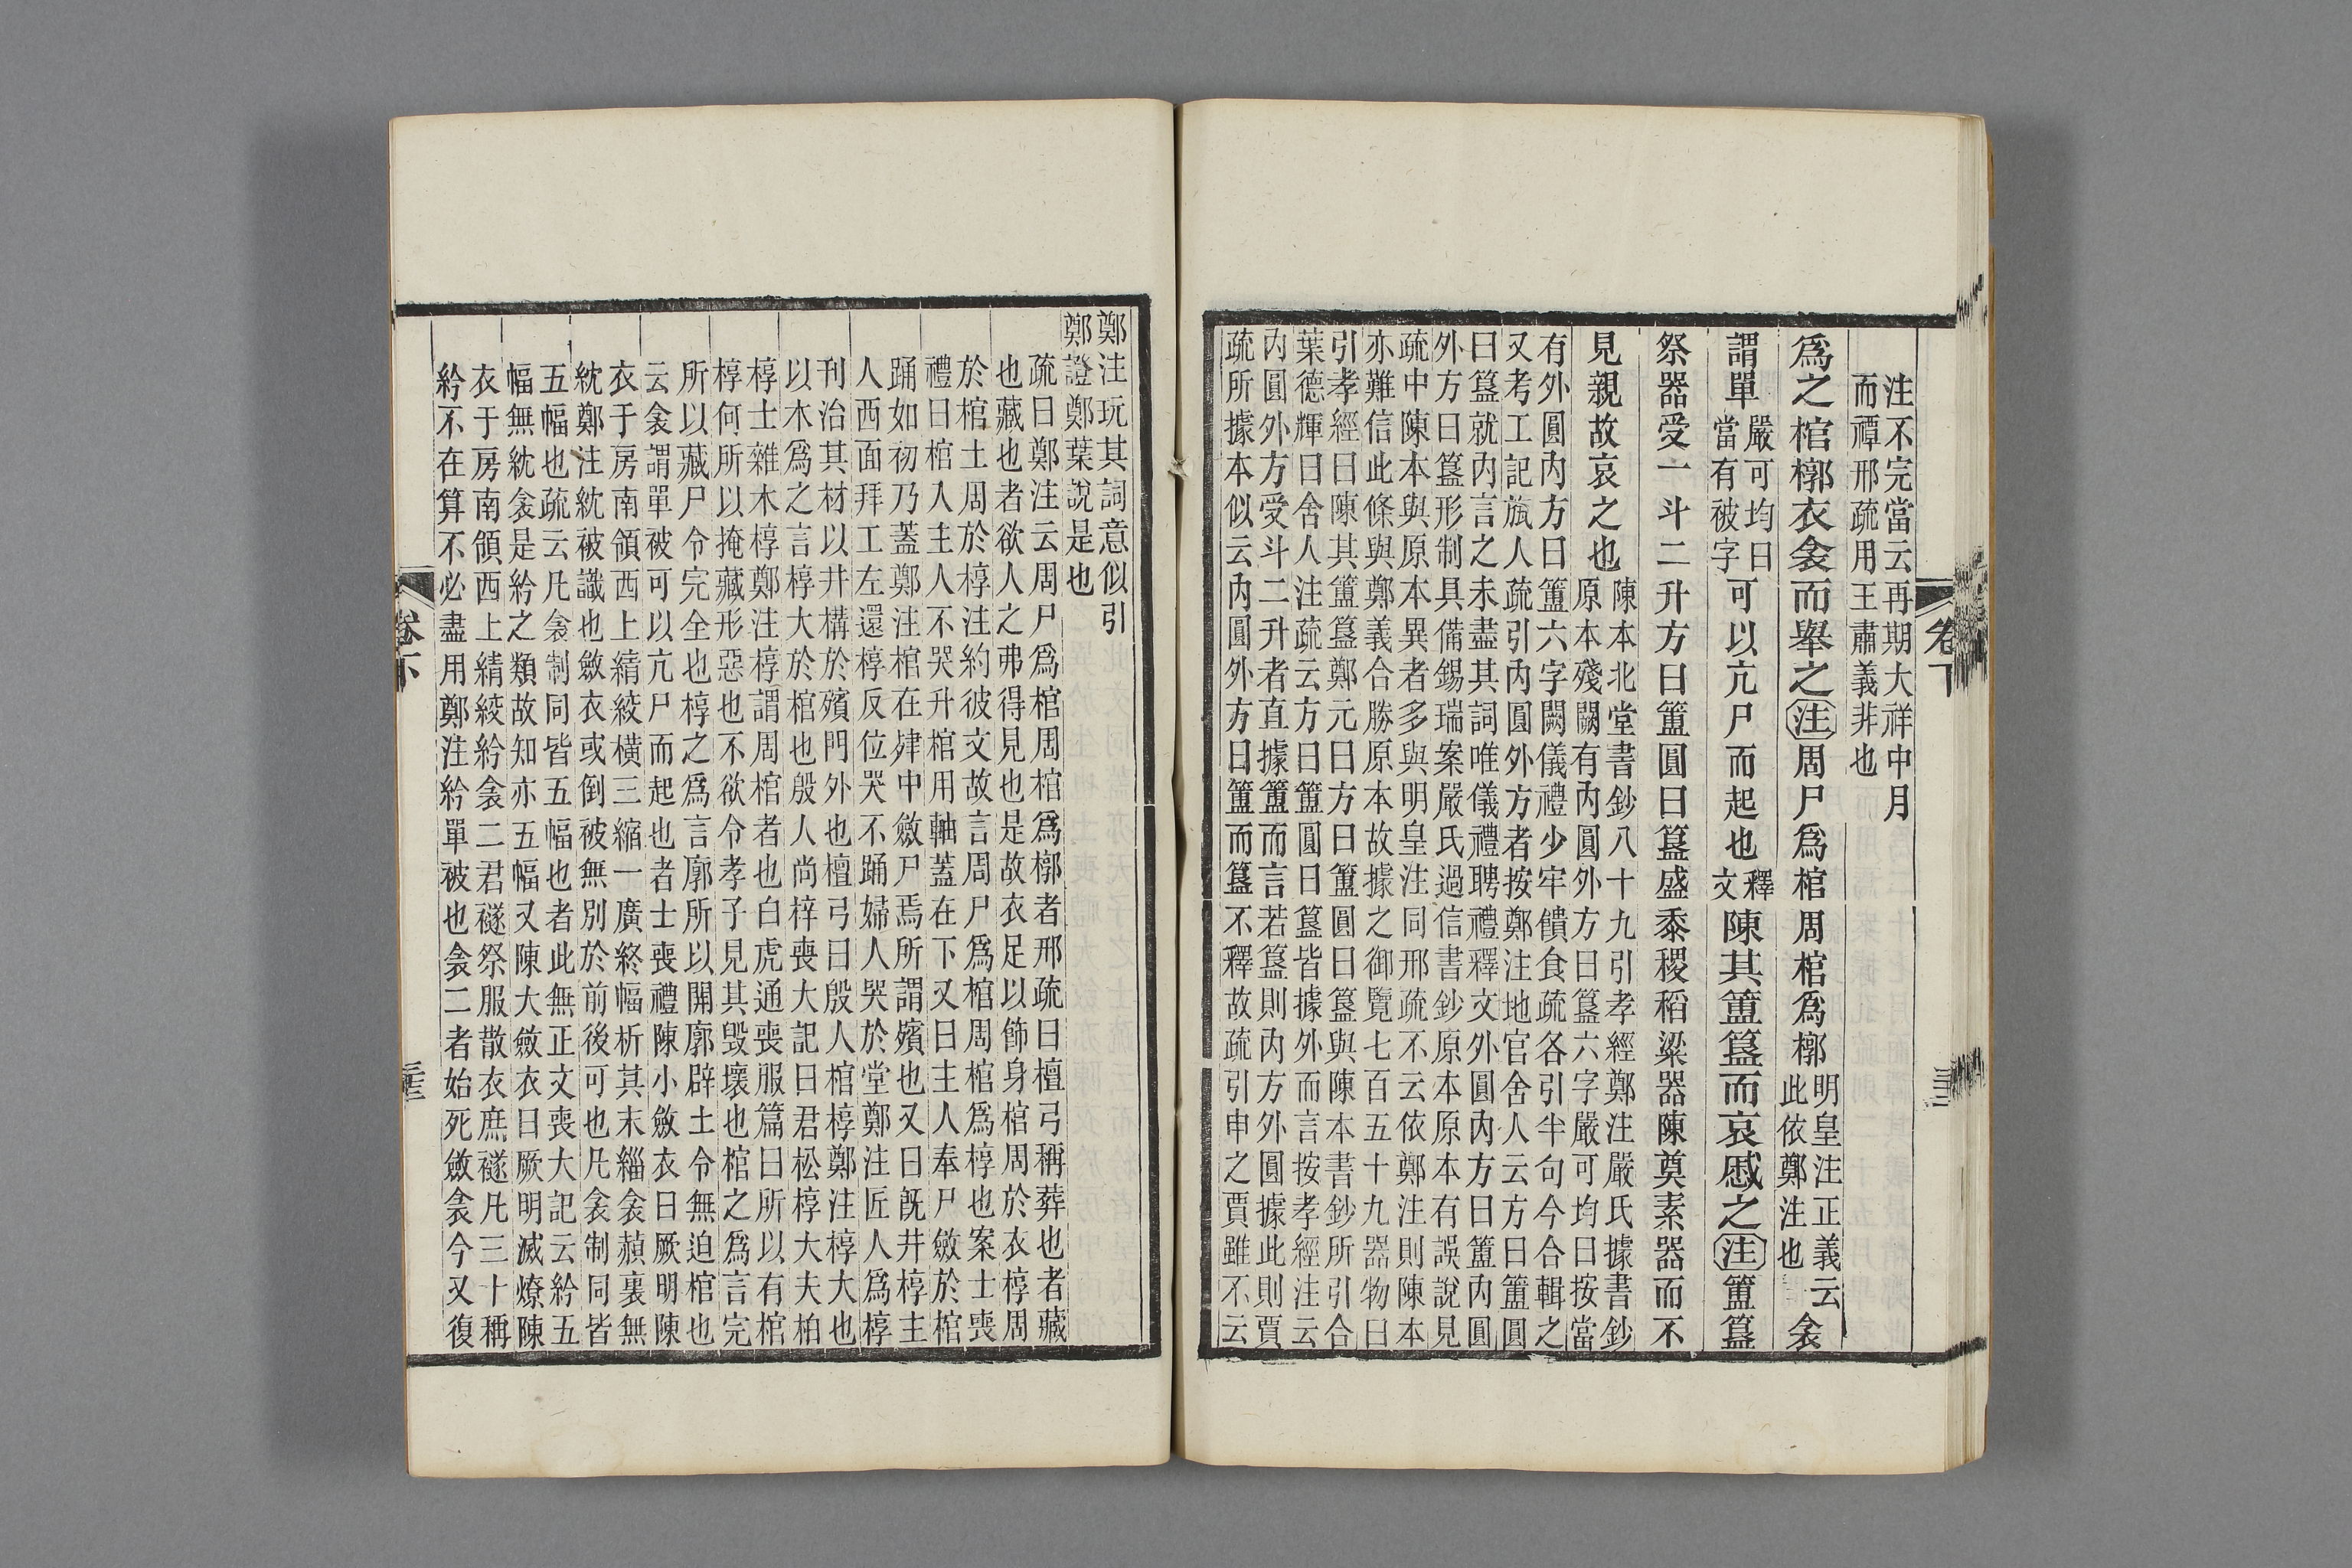 注不完當云再期大祥中月
而禫邢疏用王肅義非也
爲之棺槨衣衾而舉之注周尸爲棺周棺爲槨明皇注正義云此依鄭注也衾
謂單嚴可均曰當有被字可以亢尸而起也釋文陳其簠簋而哀慼之注簠簋
祭器受一斗二升方曰簠圓曰簋盛黍稷稻粱器陳奠素器而不
見親故哀之也陳本北堂書鈔八十九引孝經鄭注嚴氏據書鈔
原本殘闕有內圓外方曰簋六字嚴可均曰按當
有外圓內方曰簠六字闕儀禮少牢饋食疏各引半句今合輯之
又考工記瓬人疏引內圓外方者按鄭注地官舍人云方曰簠圓
曰簋就內言之未盡其詞唯儀禮聘禮釋文外圓內方曰簠內圓
外方曰簋形制具備錫瑞案嚴氏過信書鈔原本原本有誤說見
疏中陳本與原本異者多與明皇注同邢疏不云依鄭注則陳本
亦難信此條與鄭義合勝原本故據之御覽七百五十九器物曰
引孝經曰陳其簠簋鄭元曰方曰簠圓曰簋與陳本書鈔所引合
葉德輝曰舍人注疏云方曰簠圓曰簋皆據外而言按孝經注云
內圓外方受斗二升者直據簠而言若簋則內方外圓據此則賈
疏所據本似云內圓外方曰簠而簋不釋故疏引申之賈雖不云
卷下
鄭注玩其詞意似引
鄭證鄭葉說是也
疏曰鄭注云周尸爲棺周棺爲槨者邢疏曰檀弓稱葬也者藏
也藏也者欲人之弗得見也是故衣足以飾身棺周於衣椁周
於棺土周於椁注約彼文故言周尸爲棺周棺爲椁也案士喪
禮曰棺人主人不哭升棺用軸蓋在下又曰主人奉尸斂於棺
踊如初乃蓋鄭注棺在肂中斂尸焉所謂殯也又曰旣井椁主
人西面拜工左還椁反位哭不踊婦人哭於堂鄭注匠人爲椁
刊治其材以井構於殯門外也檀弓曰殷人棺椁鄭注椁大也
以木爲之言椁大於棺也殷人尚梓喪大記曰君松椁大夫柏
椁士雜木椁鄭注椁謂周棺者也白虎通喪服篇曰所以有棺
椁何所以掩藏形惡也不欲令孝子見其毀壞也棺之爲言完
所以藏尸令完全也椁之爲言廓所以開廓辟土令無迫棺也
云衾謂單被可以亢尸而起也者士喪禮陳小斂衣曰厥明陳
衣于房南領西上綪絞橫三縮一廣終幅析其末緇衾赬裏無
紞鄭注紞被識也斂衣或倒被無別於前後可也凡衾制同皆
五幅也疏云凡衾制同皆五幅也者此無正文喪大記云紟五
幅無紞衾是紟之類故知亦五幅又陳大斂衣曰厥明滅燎陳
衣于房南領西上綪絞紟衾二君襚祭服散衣庶襚凡三十稱
紟不在算不必盡用鄭注紟單被也衾二者始死斂衾今又復
卷下